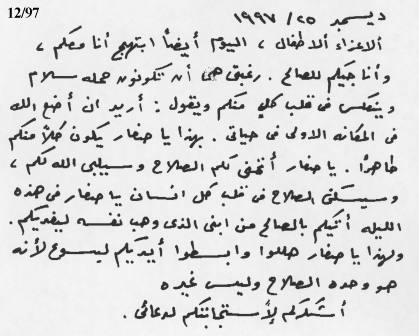 12/97
ديسمبر ٢٥/ ١٩٩٧
ألاعزاء ألاطفال ، اليوم أيضاً ابتهج أنا معكم ،
وأنا جيكم للصالح . رغبتي هى أن تكونون حمله سلام
وينعكس فى قلب كلٍ منكم ويقول : أريد ان أضع الله
فى المكانه الاولى فى حياتى . بهذا يا صغار يكون كلاً منكم
طاهرًا . يا صغار أتمنى لكم الصلاح وسيلبى الله لكم ،
وسيسكن الصلاح فى قلب كل انسان يا صغار فى هذه
الليله أتيكم بالصالح من ابنى الذى وهب نفسه ليفديكم .
ولهذا يا صغار هللوا وابسطوا أيديكم ليسوع لأنه
هو وحده الصلاح وليس غيره
أشكركم لأستجابتكم لدعائى .